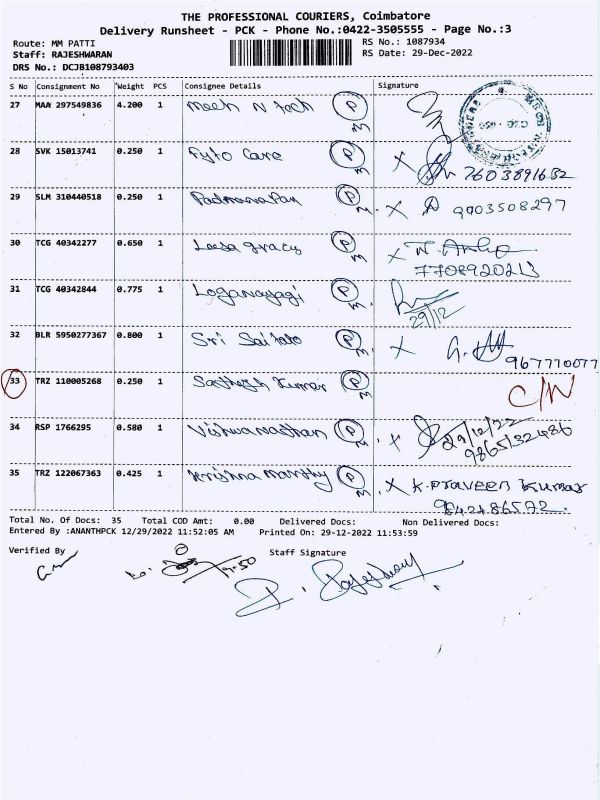 THE PROFESSIONAL COURIERS, Coimbatore
Delivery Runsheet - PCK - Phone No.:0422-3505555 - Page No.:3
Route: MM PATTI RS No.: 1087934
Staff: RAJESHWARAN RS Date: 29-Dec-2022
DRS No.: DCJB108793403
S No Consignment No Weight PCS Consignee Details Signature
27 MAA 297549836 4.200 1 Meeh N Tech P M
28 SVK 15013741 0.250 1 Fyto Care P M X 7603891682
29 SLM 310440518 0.250 1 P M. X 9003508297
30 TCG 40342277 0.650 1 Leesa gracy P M X
7708920213
31 TCG 40342844 0.775 1 Loganayagi P M.
29/12
32 BLR 5950277367 0.800 1 Sri Sai P M X
967770077
33 TRZ 110005268 0.250 1 Sathesh Kumar P M C/N
34 RSP 1766295 0.580 1 Vishwanathan P M. X 29/12/22
9865132486
35 TRZ 122067363 0.425 1 Krishna P M. X K. Praveen Kumar
9042486572.
Total No. Of Docs: 35 Total COD Amt: 0.00 Delivered Docs: Non Delivered Docs:
Entered By :ANANTHPCK 12/29/2022 11:52:05 AM Printed On: 29-12-2022 11:53:59
Verified By Staff Signature